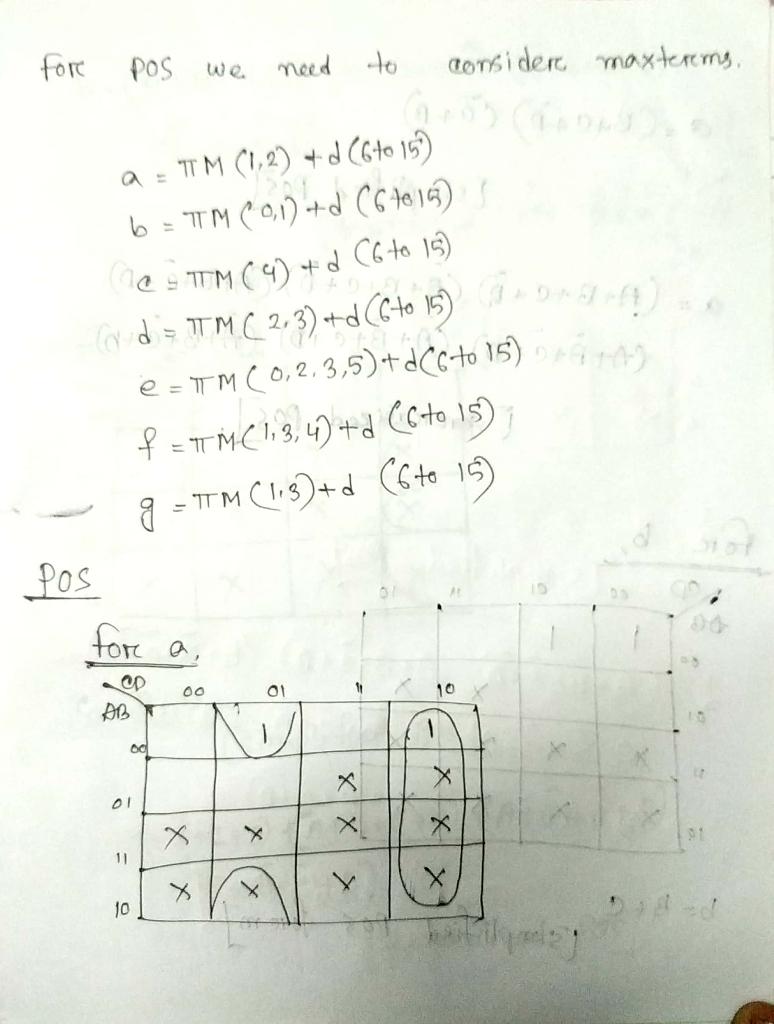 fore POS we need to considere maxterems.
a = πM (1,2) + d (6 to 15)
b = πM (0,1) + d (6 to 15)
c = πM (4) + d (6 to 15)
d = πM (2,3) + d (6 to 15)
e = πM (0,2,3,5) + d (6 to 15)
f = πM (1,3,4) + d (6 to 15)
g = πM (1,3) + d (6 to 15)
POS
fore a,
CD 00 01 11 10
AB
00 1 1
01 X X
11 X X X X
10 X X X X